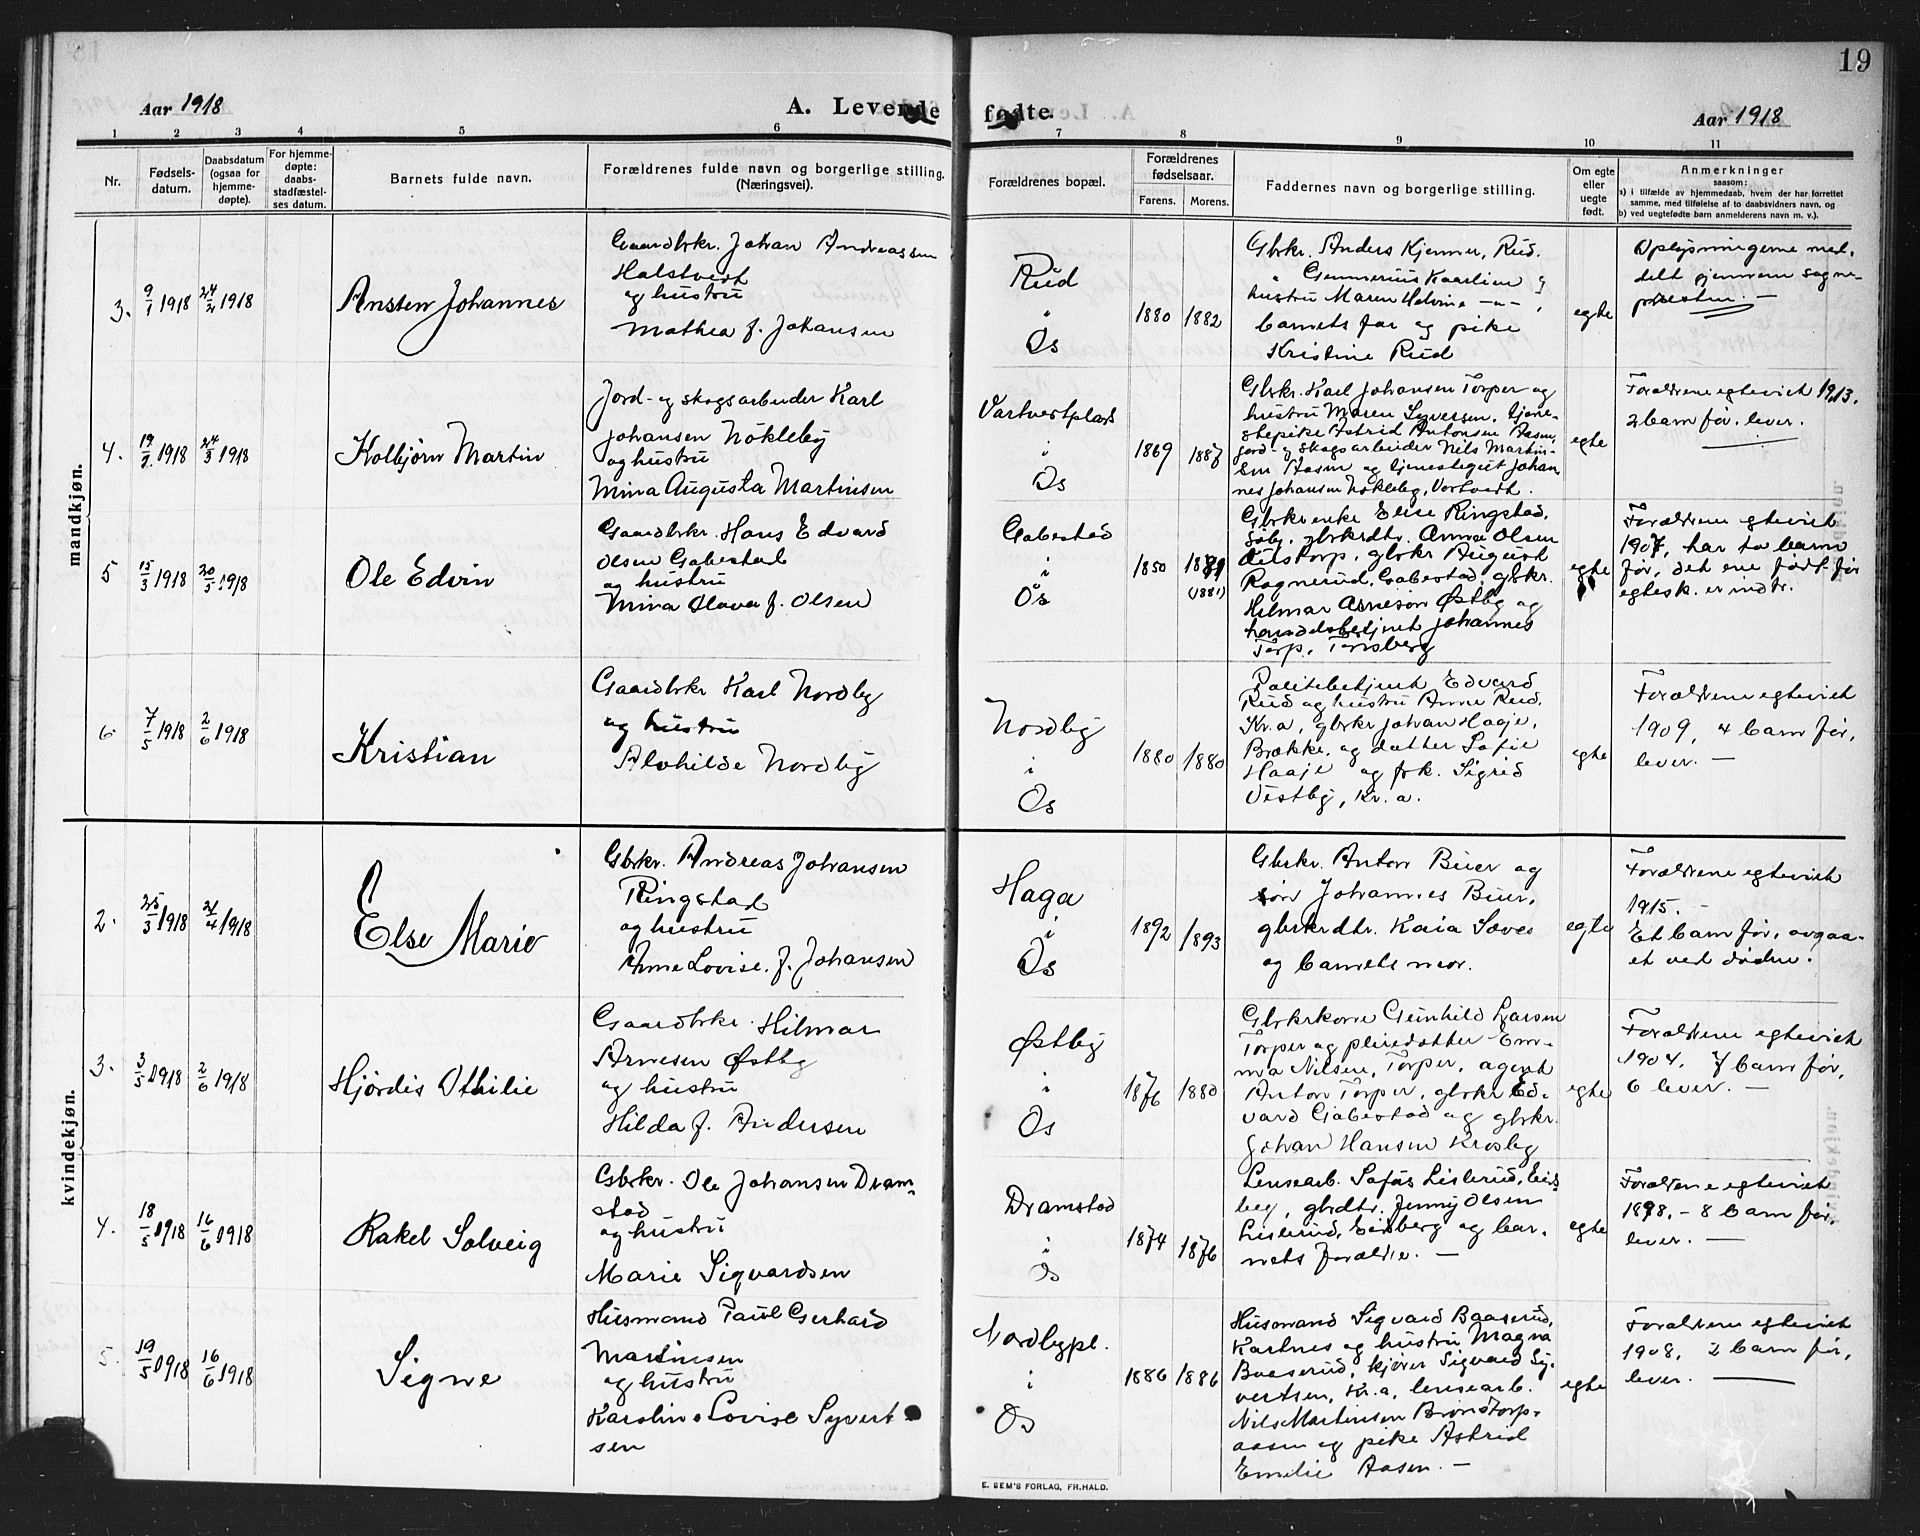 19
Aar 1918
A. Levende fødte.
Aar 1918
1 2 3 4 5 6 7 8 9 10 11
Nr.
Fødsels-
datum.
Daabsdatum
(ogsaa for
hjemme-
døpte).
For hjemme-
døpte:
daabs-
stadfæstel-
ses datum.
Barnets fulde navn.
Forældrenes fulde navn og borgerlige stilling.
(Næringsvei).
Forældrenes bopæl.
Forældrenes
fødselsaar.
Farens. Morens.
Faddernes navn og borgerlige stilling.
Om egte
eller
uegte
født.
Anmerkninger
saasom:
a) i tilfælde av hjemmedaab, hvem der har forrettet
samme, med tilføielse af to daabsvidners navn, og
b) ved uegtefødte barn anmelderens navn m. v.).
mandkjøn.
3.
9/1 1918
24/2 1918
Ansten Johannes
Gaardbrkr. Johan Andreassen
Halstvedt
og hustru
Mathea f. Johansen
Rud
"
Os
1880
1882
Gbrkr. Anders Kjenner, Rud.
" Gunnerius Kaarlien og
hustru Maren Helvine -"-
barnets far og pike
Kristine Rud
egte
Oplysningerne med-
delt gjennem sogne-
presten. —
4.
19/1 1918
24/3 1918
Kolbjørn Martin
Jord- og skogsarbeider Karl
Johansen Nökleby
og hustru
Mina Augusta Martinsen
Vartvetplads
i
Os
1869
1887
Gbrkr. Karl Johansen Torper og
hustru Maren Syversen, tjene-
stepike Astrid Antonsen Aasen,
jord- og skogsarbeider Nils Martin-
sen Aasen og tjenestegut Johan-
nes Johansen Nökleby, Vortvedt.
egte
Forældrene egteviet 1913.
2 barn før, lever.
5
15/3 1918
20/5 1918
Ole Edvin
Gaardbrkr. Hans Edvard
Olsen Gabestad
og hustru
Mina Olava f. Olsen
Gabestad
i
Os
1850
1881
(1881)
Gbrkrenke Elise Ringstad,
Søby, gbrkrdtr. Anna Olsen
torp, gbrkr August
Ragnerud, Gabestad, gbkr.
Hilmar Arnesøn Østby og
handelsbetjent Johannes
Torp, Tønsberg
egte
Forældrene egteviet
1907, har to barn
før, det ene født før
egtesk. er indtr.
6
7/5 1918
2/6 1918
Kristian
Gaardbrkr Karl Nordby
og hustru
Alvhilde Nordby
Nordby
i
Os
1880
1880
Politibetjent Edvard
Rud og hustru Anne Rud,
Kr.a, gbrkr Johan Haaje,
Brække, og datter Sofie
Haaje og frk. Sigrid
Vestby, Kr.a.
egte
Forældrene egteviet
1909, 4 barn før,
lever. —
kvindekjøn.
2.
25/3 1918
21/4 1918
Else Marie
Gbrkr. Andreas Johansen
Ringstad
og hustru
Anne Lovise f. Johansen
Haga
i
Os
1892
1893
Gbrkr. Anton Buer og
søn Johannes Buer,
gbrkrdtr. Kaia Saves
og barnets mor.
egte
Forældrene egteviet
1915. -
Et barn før, avgaa-
et ved døden.
3.
3/5 1918
2/6 1918
Hjördis Othilie
Gaardbrkr. Hilmar
Arnesen Østby
og hustru
Hilda f. Andersen
Østby
i
Os
1876
1880
Gbrkrkone Gunhild Larsen
Torper og pleiedatter Em-
ma Nilsen, Torper, agent
Anton Torper, gbrkr Ed-
vard Gabestad og gbrkr.
Johan Hansen Krosby
egte
Forældrene egteviet
1904. 7 barn før,
6 lever. —
4.
18/5 1918
16/6 1918
Rakel Solveig
Gbrkr. Ole Johansen Dram-
stad
og hustru
Marie Sigvardsen
Dramstad
i
Os
1874
1876
Lensearb. Sofus Lislerud, Eids-
berg, gbrdtr. Jenny Olsen
Lislerud, Eidsberg og bar-
nets forældre. —
egte
Forældrene egteviet
1898. - 8 barn før,
lever. —
5.
19/5 1918
16/6 1918
Signe
Husmand Paul Gerhard
Martinsen
og hustru
Karoline Lovise Syvert-
sen
Nordbypl.
i
Os
1886
1886
Husmand Sigvard Baaserud,
Kartnes og hustru Magna
Baaserud, kjører Sigvard Sy-
vertsen, Kr.a, lensearb.
Nils Martinsen Brøndtorp-
aasen og pike Astrid
Emilie Aasen. —
egte
Forældrene egteviet
1908, 2 barn før,
lever. —
E. SEM'S FORLAG, FR.HALD.